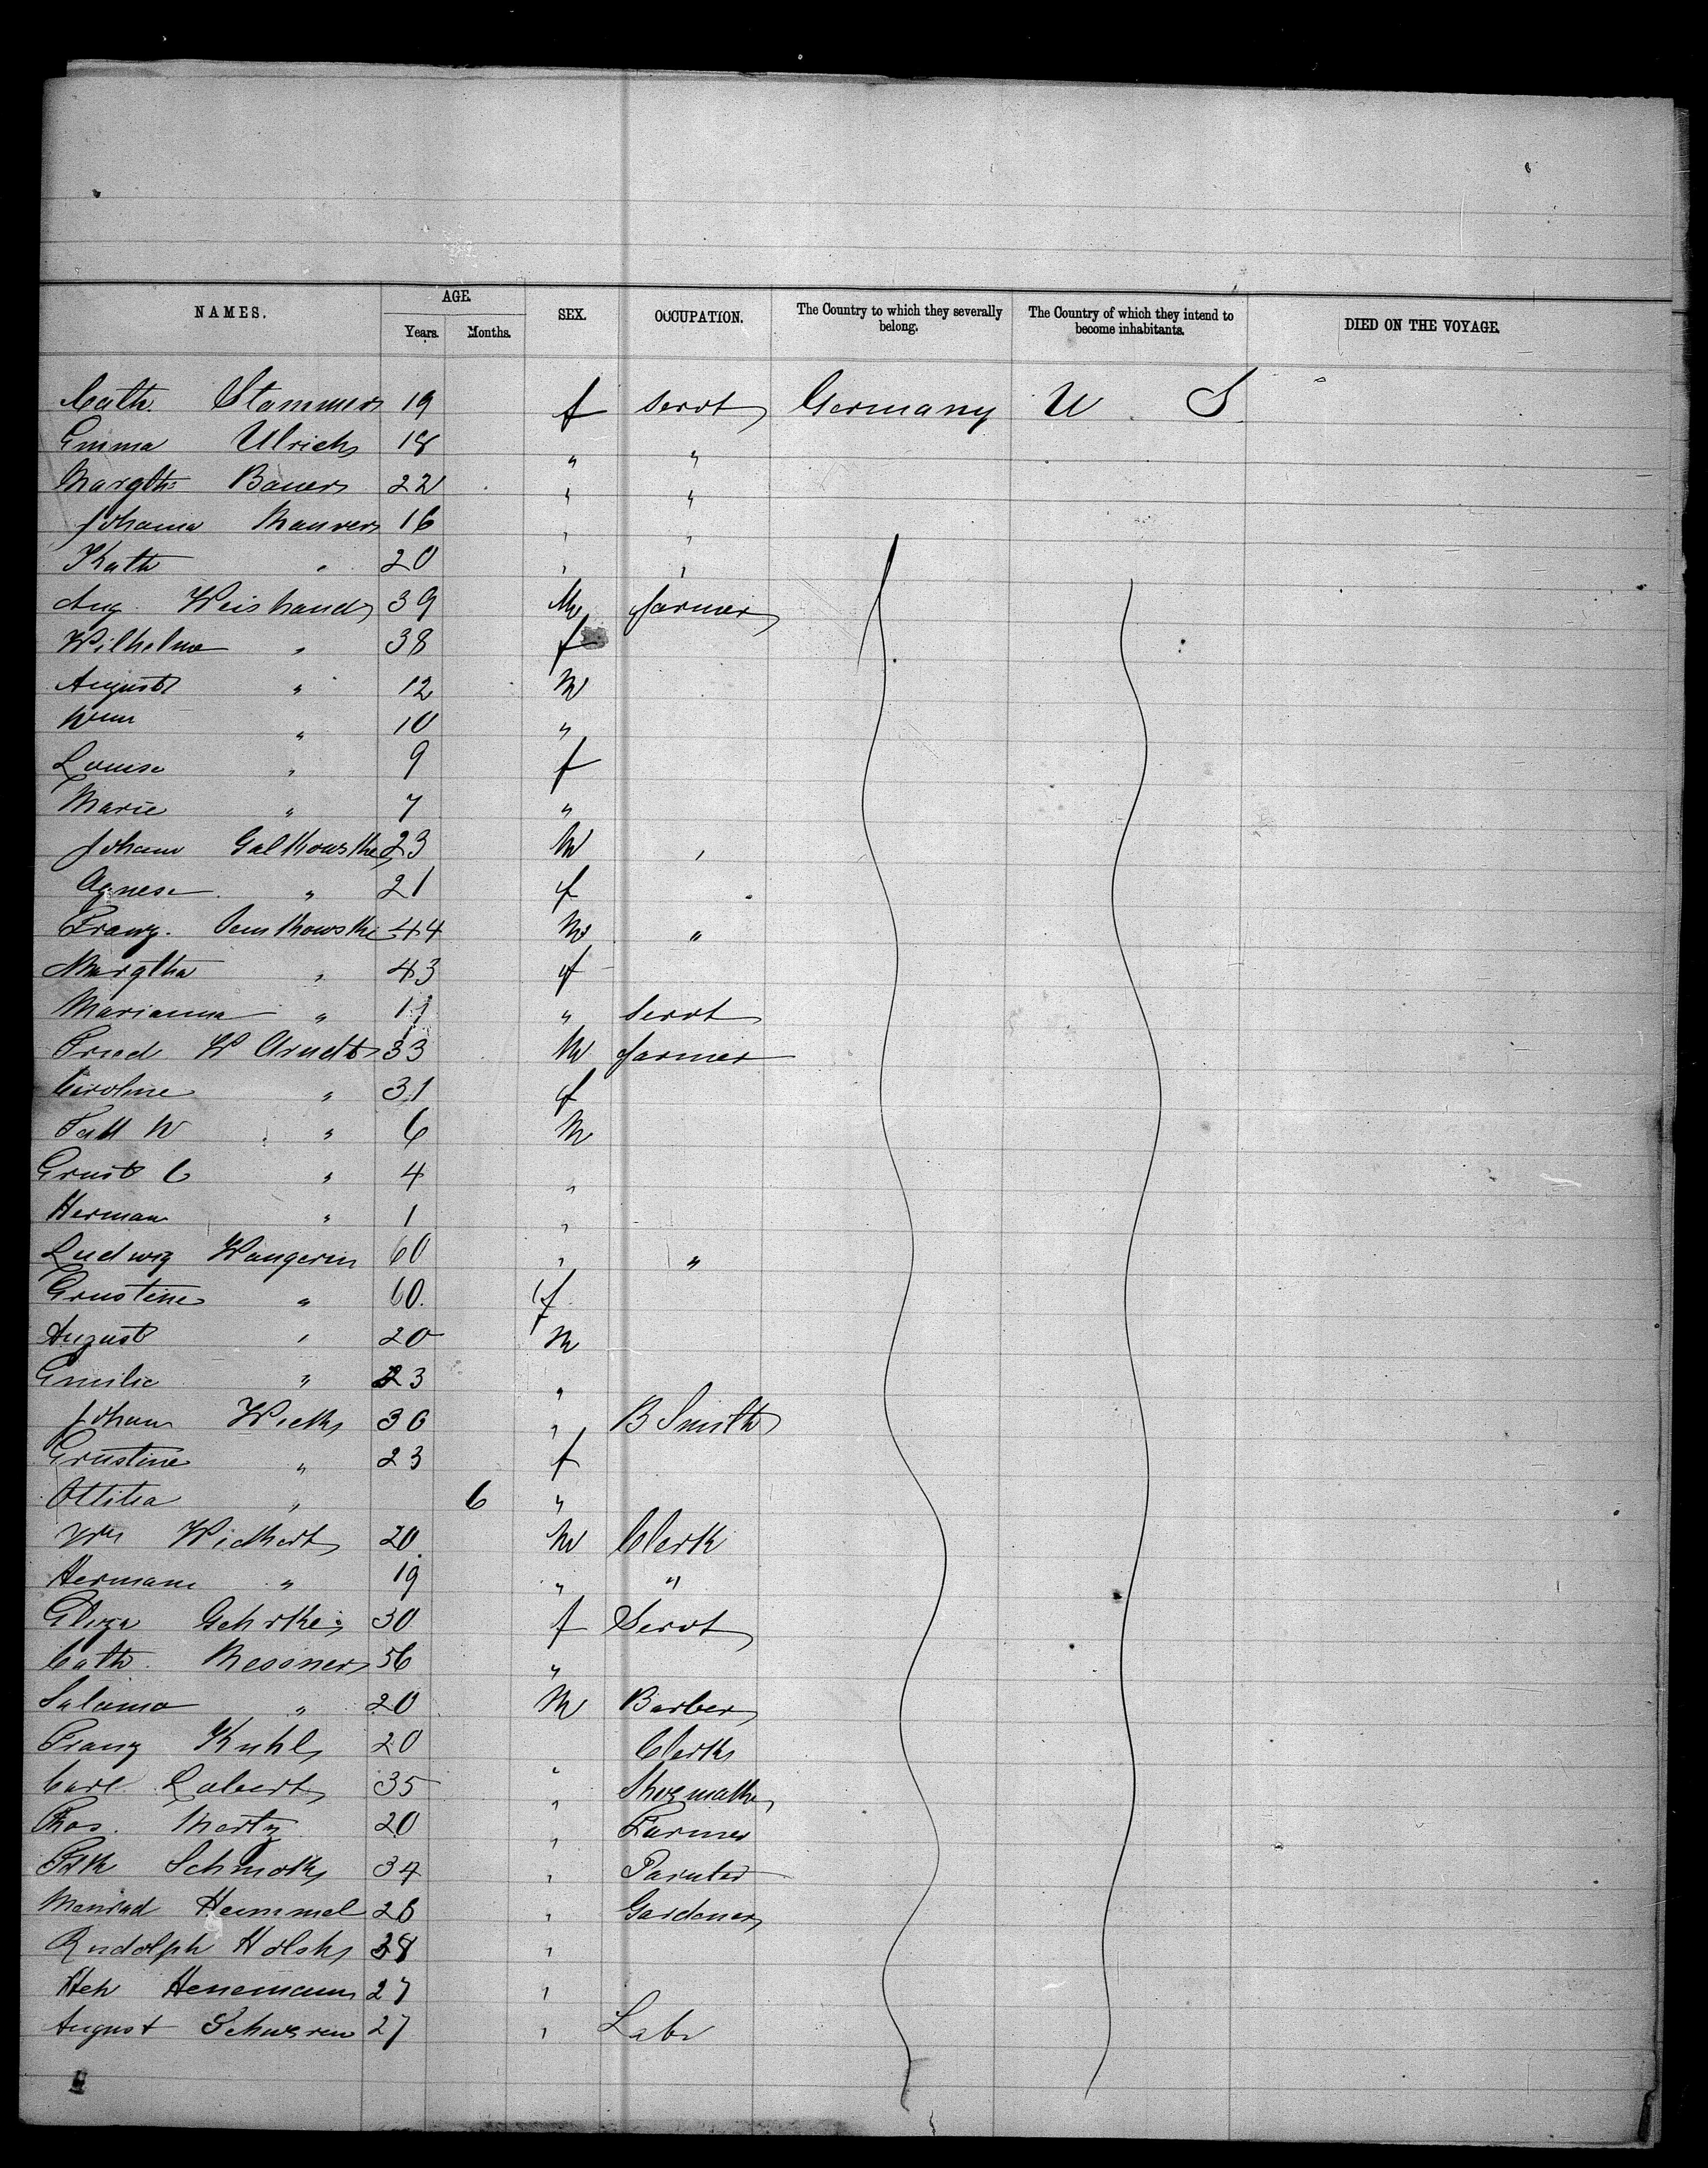 NAMES. AGE. SEX. OCCUPATION. The Country to which they severally belong. The Country of which they intend to become inhabitants. DIED ON THE VOYAGE.
Years. Months.
Cath. Stammer 19 f Servt Germany U S
Emma Ulrich 18 " "
Margth Bauer 22 " "
Johanna Maurer 16 " "
Kath " 20 " "
Aug. Weishaud 39 M farmer
Wilhelme " 38 f
August " 12 M
Wm " 10 "
Louise " 9 f
Marie " 7 "
Johann Galkowske 23 M "
Agnese " 21 f
Franz. 44 M "
Margtha " 43 f
Marianna " 11 " Servt
Fried W Arndt 33 M farmer
Caroline " 31 f
W " 6 M
Ernst C " 4 "
Herman " 1 "
Ludwig Wangerin 60 " "
Ernstine " 60. f
August " 20 M
Emilie " 23 "
Johann Wieck 30 " B Smith
Ernstine " 23 f
Ottilia " 6 "
Wm Wickert 20 M Clerk
Hermann " 19 " "
Eliza Gehrke 30 f Servt
Cath. Messner 56 "
Salamo " 20 M Barber
Franz Kuhl 20 " Clerk
Carl Labert 35 " Shoemaker
Chas. Mertz 20 " Farmer
Fdk Schmok 34 " Painter
Menrad Hemmel 26 " Gardener
Rudolph Holsh 38 "
Hch Henemann 27 "
August Schweren 27 " Labr